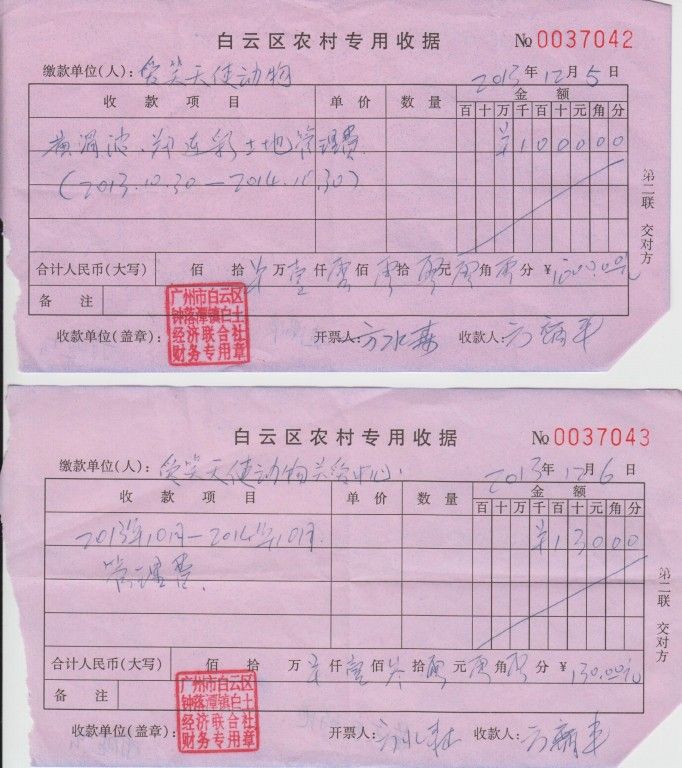 白云区农村专用收据 №0037042
缴款单位(人): 爱笑天使动物 2013年12月5日
收款项目 单价 数量 金额
百十万千百十元角分
黄润波、郑连彩土地管理费 ¥100000
(2013.10.30—2014.10.30)
第二联 交对方
合计人民币(大写) 佰 拾 万壹仟零佰零拾零元零角零分 ¥1000.00元
备注
广州市白云区
钟落潭镇白土
经济联合社
财务专用章
收款单位(盖章): 开票人: 方水 收款人: 方 平
白云区农村专用收据 №0037043
缴款单位(人): 爱笑天使动物关爱中心. 2013年12月6日
收款项目 单价 数量 金额
百十万千百十元角分
2013年10月—2014年10月 ¥13000
管理费.
第二联 交对方
合计人民币(大写) 佰 拾 万 仟壹佰叁拾零元零角零分 ¥130.00元
备注
广州市白云区
钟落潭镇白土
经济联合社
财务专用章
收款单位(盖章): 开票人: 方水 收款人: 方 平